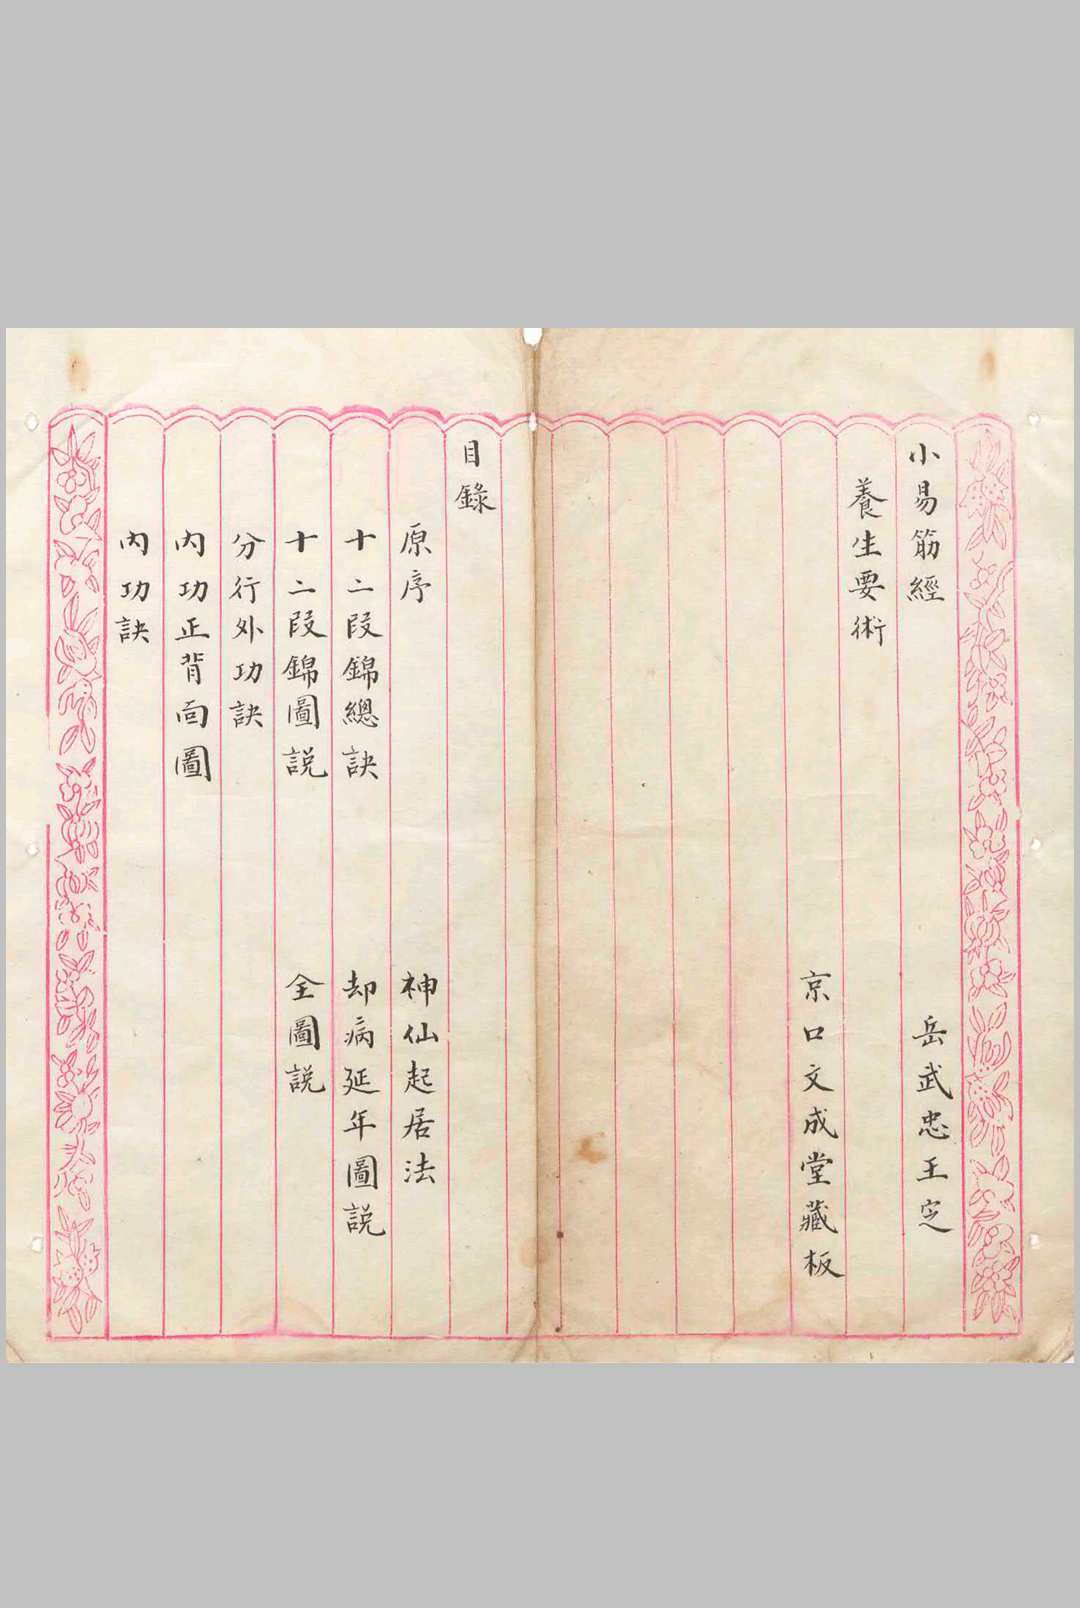 小易筋經 岳武忠王定
養生要術
京口文成堂藏板
目錄
原序 神仙起居法
十二段錦總訣 却病延年圖説
十二段錦圖説 全圖説
分行外功訣
內功正背面圖
內功訣